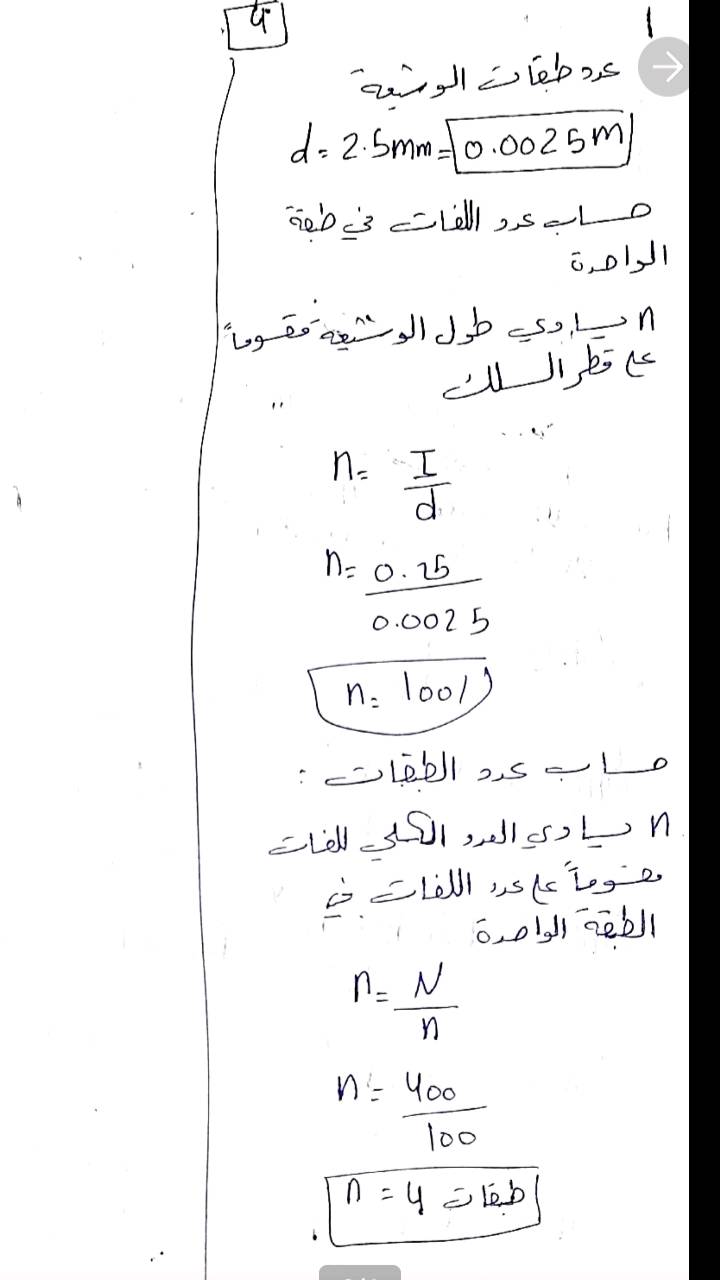 4
1
عدد طبقات الوشيعة
d = 2.5mm = 0.0025m
حساب عدد اللفات في طبقة
الواحدة
n يساوي طول الوشيعة مقسوماً
على قطر السلك
n = I / d
n = 0.25 / 0.0025
n = 100
حساب عدد الطبقات :
n يساوي العدد الكلي للفات
مقسوماً على عدد اللفات في
الطبقة الواحدة
n = N / n
n = 400 / 100
n = 4 طبقات